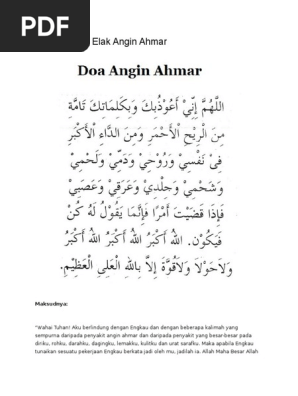 PDF
Elak Angin Ahmar
Doa Angin Ahmar
اَللّٰهُمَّ اِنِّيْ اَعُوْذُبِكَ وَبِكَلِمَاتِكَ تَامَّةِ
مِنَ الرِّيْحِ الْأَحْمَرِ وَمِنَ الدَّاءِ الْأَكْبَرِ
فِىْ نَفْسِيْ وَرُوْحِيْ وَدَمِّيْ وَلَحْمِيْ
وَشَحْمِيْ وَجِلْدِيْ وَعَرَقِيْ وَعَصَبِيْ
فَاِذَا قَضَيْتَ اَمْرًا فَاِنَّمَا يَقُوْلُ لَهُ كُنْ
فَيَكُوْنَ. اَللهُ اَكْبَرُ اَللهُ اَكْبَرُ اَللهُ اَكْبَرُ
وَلَاحَوْلَا وَلَاقُوَّةَ اِلَّا بِاللهِ الْعَلِيِّ الْعَظِيْمِ.
Maksudnya:
"Wahai Tuhan! Aku berlindung dengan Engkau dan dengan beberapa kalimah yang
sempurna daripada penyakit angin ahmar dan daripada penyakit yang besar-besar pada
diriku, rohku, darahku, dagingku, lemakku, kulitku dan urat sarafku. Maka apabila Engkau
tunaikan sesuatu pekerjaan Engkau berkata jadi oleh mu, jadilah ia. Allah Maha Besar Allah